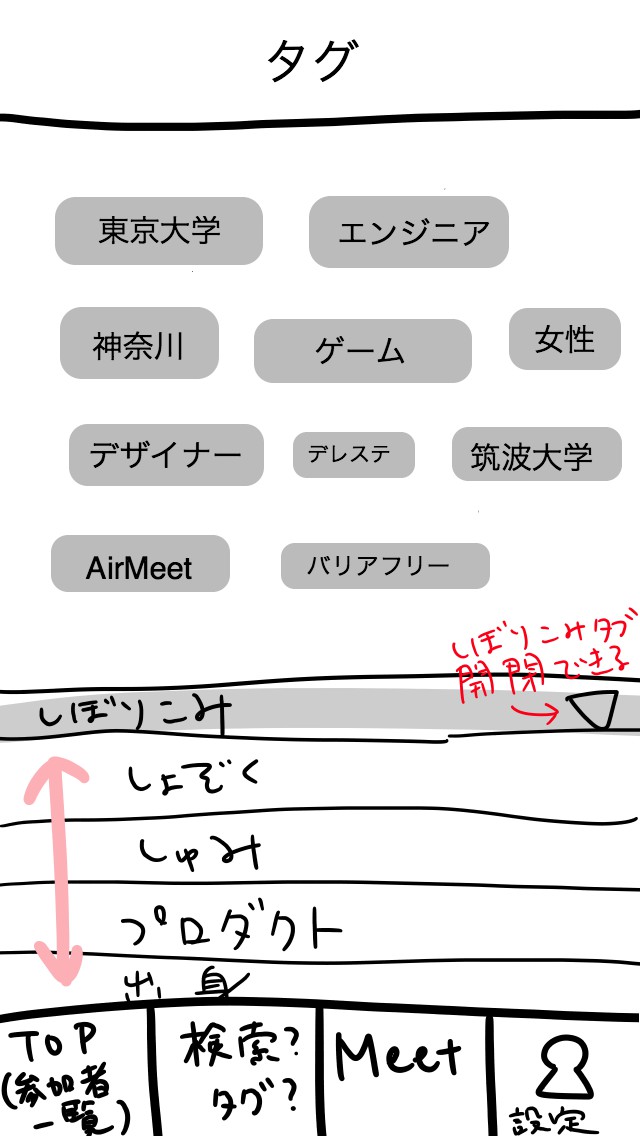 タグ
東京大学
エンジニア
神奈川
ゲーム
女性
デザイナー
デレステ
筑波大学
AirMeet
バリアフリー
しぼりこみタブ
開閉できる
しぼりこみ
しょぞく
しゅみ
プロダクト
出身
TOP
(参加者
一覧)
検索?
タグ?
Meet
設定